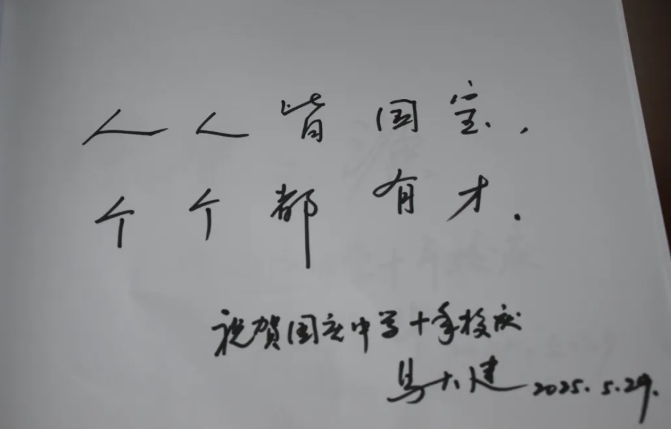 人人皆国宝,
个个都有才.
祝贺国定中学十年校庆
马大建 2025.5.29.